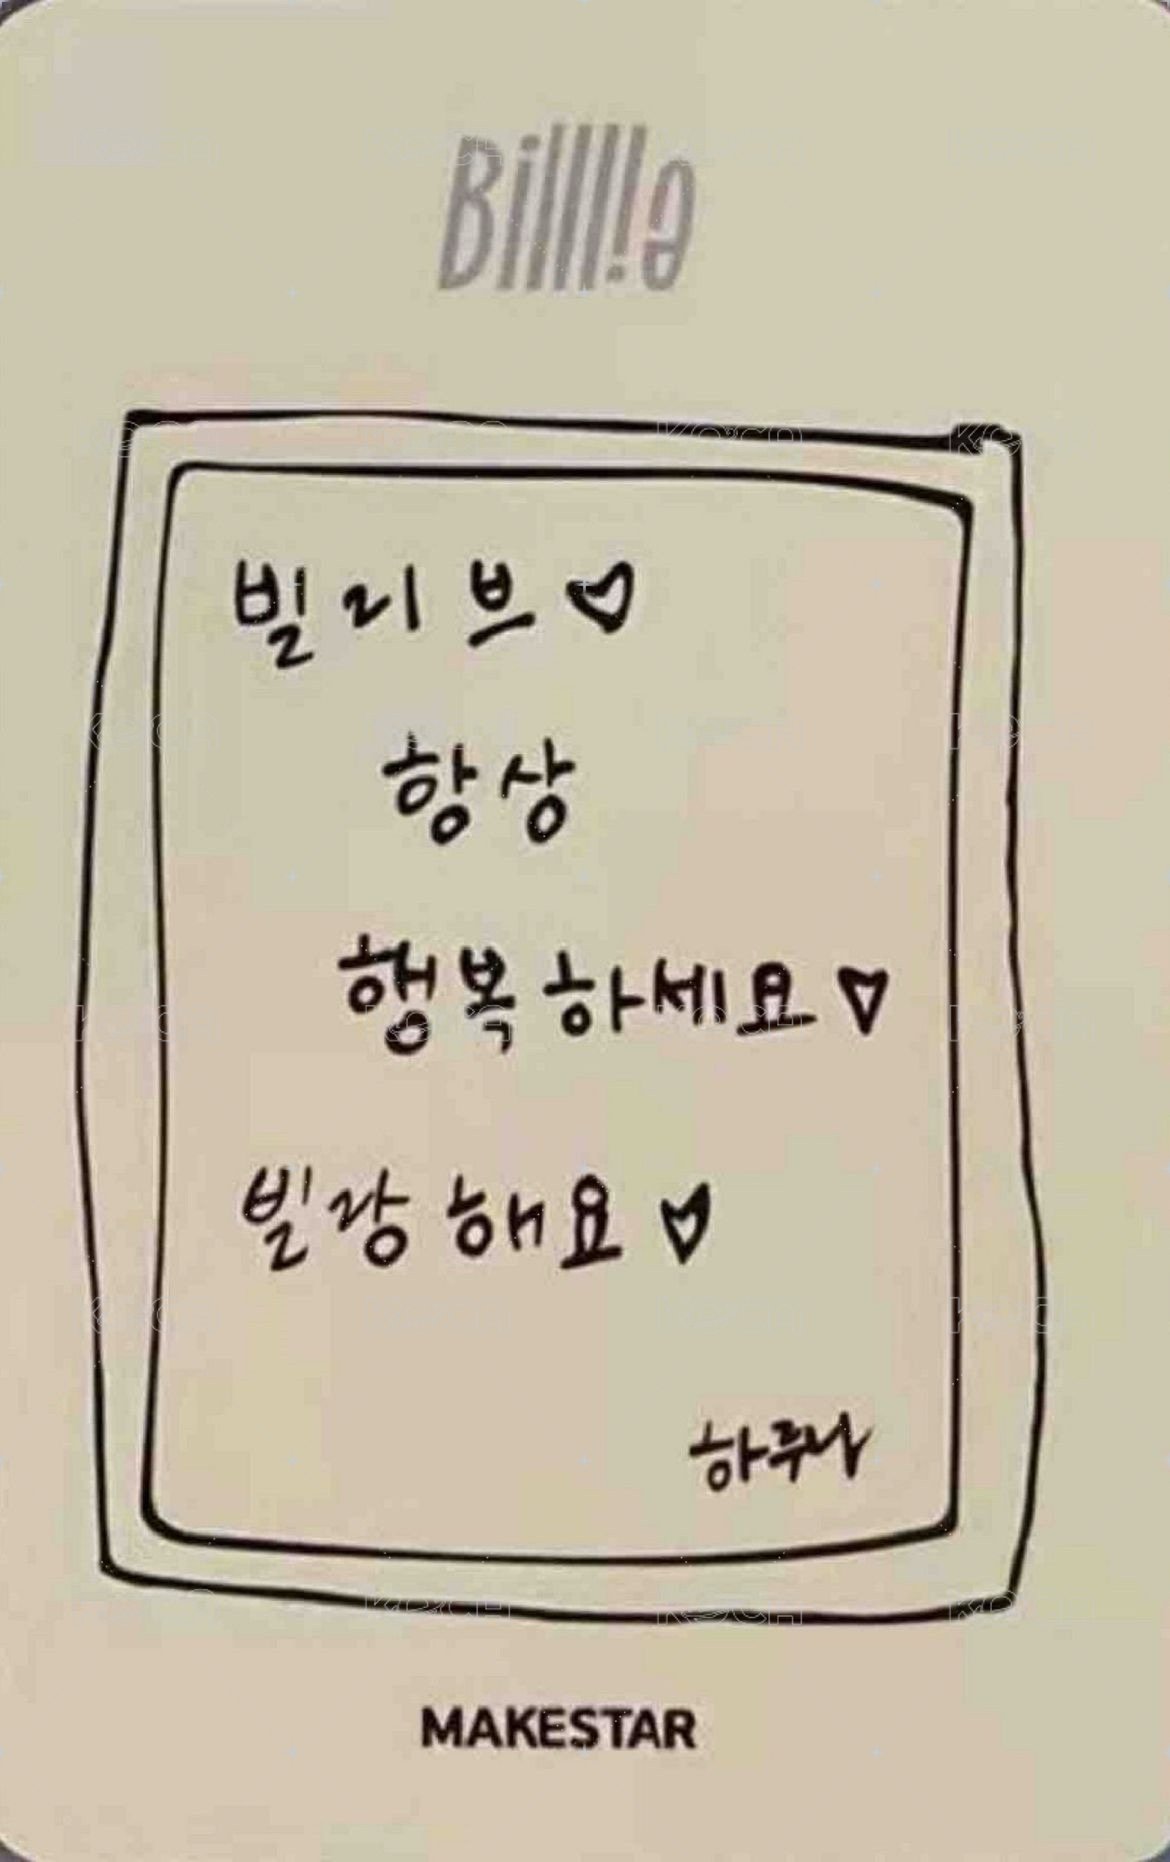 Billlie
빌리브♡
항상
행복하세요♡
빌랑해요♡
하루나
MAKESTAR